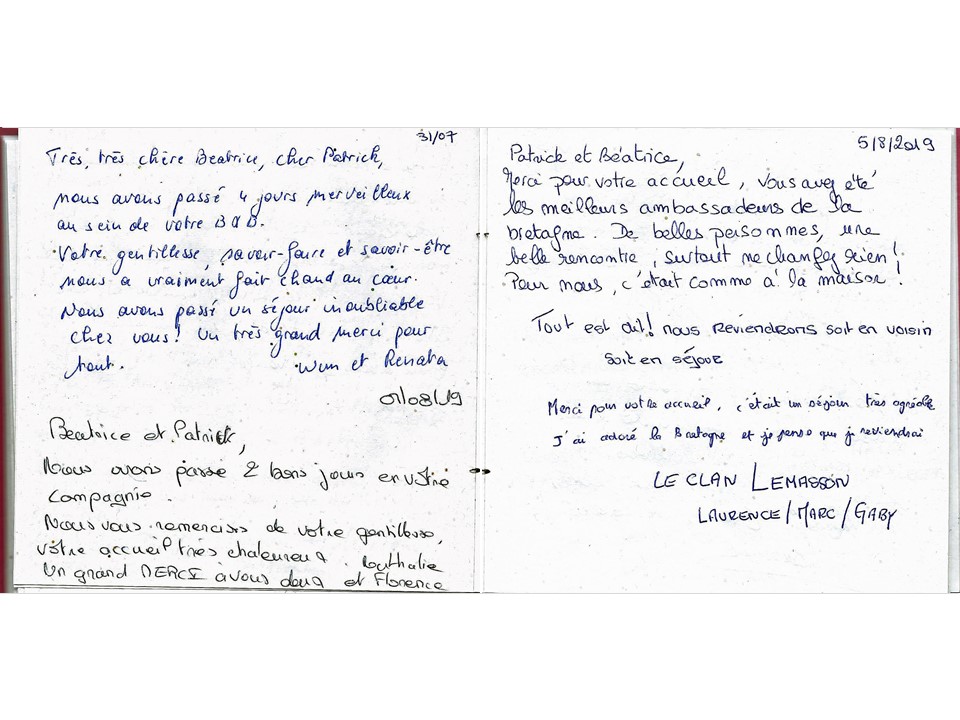 31/07
Très, très chère Beatrice, cher Patrick,
nous avons passé 4 jours merveilleux
au sein de votre B&B.
Votre gentillesse, savoir-faire et savoir-être
nous a vraiment fait chaud au cœur.
Nous avons passé un séjour inoubliable
chez vous! Un très grand merci pour
tout. Wim et Renata
01/08/19
Beatrice et Patrick,
Nous avons passé 2 bons jours en votre
compagnie.
Nous vous remercions de votre gentillesse,
votre accueil très chaleureux. Nathalie
Un grand MERCI à vous deux et Florence
5/8/2019
Patrick et Béatrice,
Merci pour votre accueil, vous avez été
les meilleurs ambassadeurs de la
bretagne. De belles personnes, une
belle rencontre, surtout ne changez rien!
Pour nous, c'était comme à la maison!
Tout est dit! nous reviendrons soit en voisin
soit en séjour
Merci pour votre accueil, c'était un séjour très agréable
J'ai adoré la Bretagne et je pense que je reviendrai
LE CLAN LEMASSON
LAURENCE/MARC/GABY